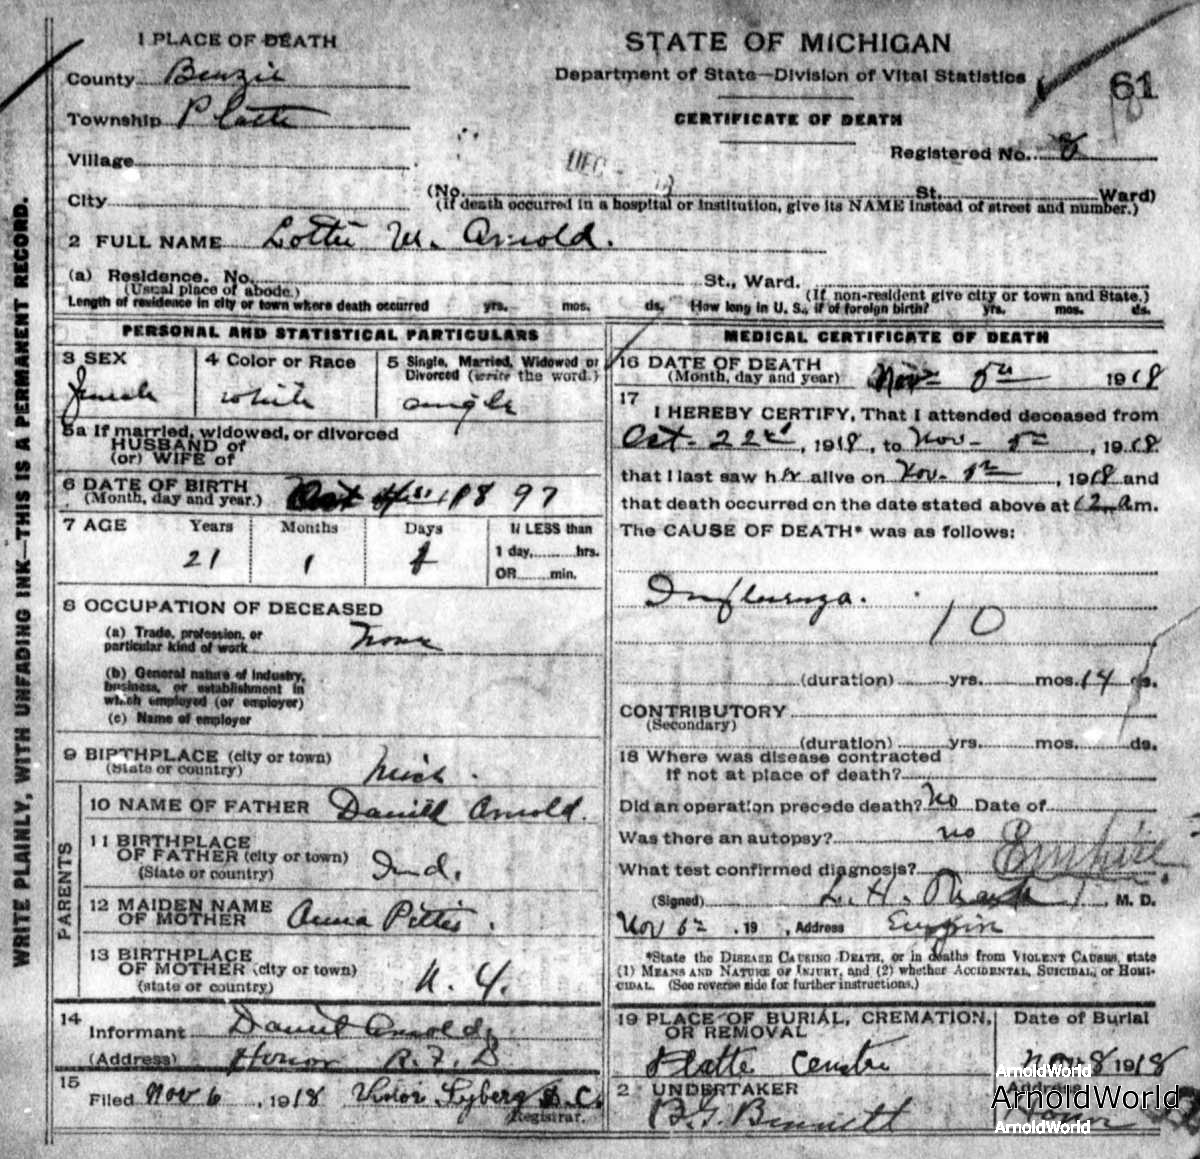 1 PLACE OF DEATH
STATE OF MICHIGAN
County Benzie
Department of State—Division of Vital Statistics
61
Township Platte
CERTIFICATE OF DEATH
18
Registered No. 8
Village
DEC
City
(No. St. Ward)
(If death occurred in a hospital or institution, give its NAME instead of street and number.)
2 FULL NAME Lottie M. Arnold.
(a) Residence. No. St., Ward.
(Usual place of abode.) (If non-resident give city or town and State.)
Length of residence in city or town where death occurred yrs. mos. ds. How long in U. S., if of foreign birth? yrs. mos. ds.
PERSONAL AND STATISTICAL PARTICULARS
3 SEX
Female
4 Color or Race
White
5 Single, Married, Widowed or
Divorced (write the word.)
single
5a If married, widowed, or divorced
HUSBAND of
(or) WIFE of
6 DATE OF BIRTH
(Month, day and year.) 1897
7 AGE Years Months Days If LESS than
21 1 1 day, hrs.
OR min.
8 OCCUPATION OF DECEASED
(a) Trade, profession, or
particular kind of work None
(b) General nature of industry,
business, or establishment in
which employed (or employer)
(c) Name of employer
9 BIRTHPLACE (city or town)
(State or country) Mich.
PARENTS
10 NAME OF FATHER Daniel Arnold.
11 BIRTHPLACE
OF FATHER (city or town)
(State or country) Ind.
12 MAIDEN NAME
OF MOTHER Anna Pittis.
13 BIRTHPLACE
OF MOTHER (city or town)
(state or country) N. Y.
14
Informant Daniel Arnold
(Address) Honor R.F.D
15
Filed Nov 6, 1918 Victor Lyberg
Registrar.
MEDICAL CERTIFICATE OF DEATH
16 DATE OF DEATH
(Month, day and year) Nov 5th 1918
17
I HEREBY CERTIFY, That I attended deceased from
Oct- 22nd, 1918, to Nov- 5th, 1918
that I last saw her alive on Nov- 5th, 1918 and
that death occurred on the date stated above at 12 a.m.
The CAUSE OF DEATH* was as follows:
Influenza.
10
(duration) yrs. mos. 14 ds.
CONTRIBUTORY
(Secondary)
(duration) yrs. mos. ds.
18 Where was disease contracted
if not at place of death?
Did an operation precede death? No Date of
Was there an autopsy? no
What test confirmed diagnosis? Empire
(Signed) L. H., M. D.
Nov 6th, 19 , Address Empire
*State the DISEASE CAUSING DEATH, or in deaths from VIOLENT CAUSES, state
(1) MEANS AND NATURE OF INJURY, and (2) whether ACCIDENTAL, SUICIDAL, or HOMI-
CIDAL. (See reverse side for further instructions.)
19 PLACE OF BURIAL, CREMATION,
OR REMOVAL
Platte
Date of Burial
Nov 8 1918
2 UNDERTAKER
B. G. Bennett
Address
Honor
ArnoldWorld
ArnoldWorld
ArnoldWorld
WRITE PLAINLY, WITH UNFADING INK—THIS IS A PERMANENT RECORD.